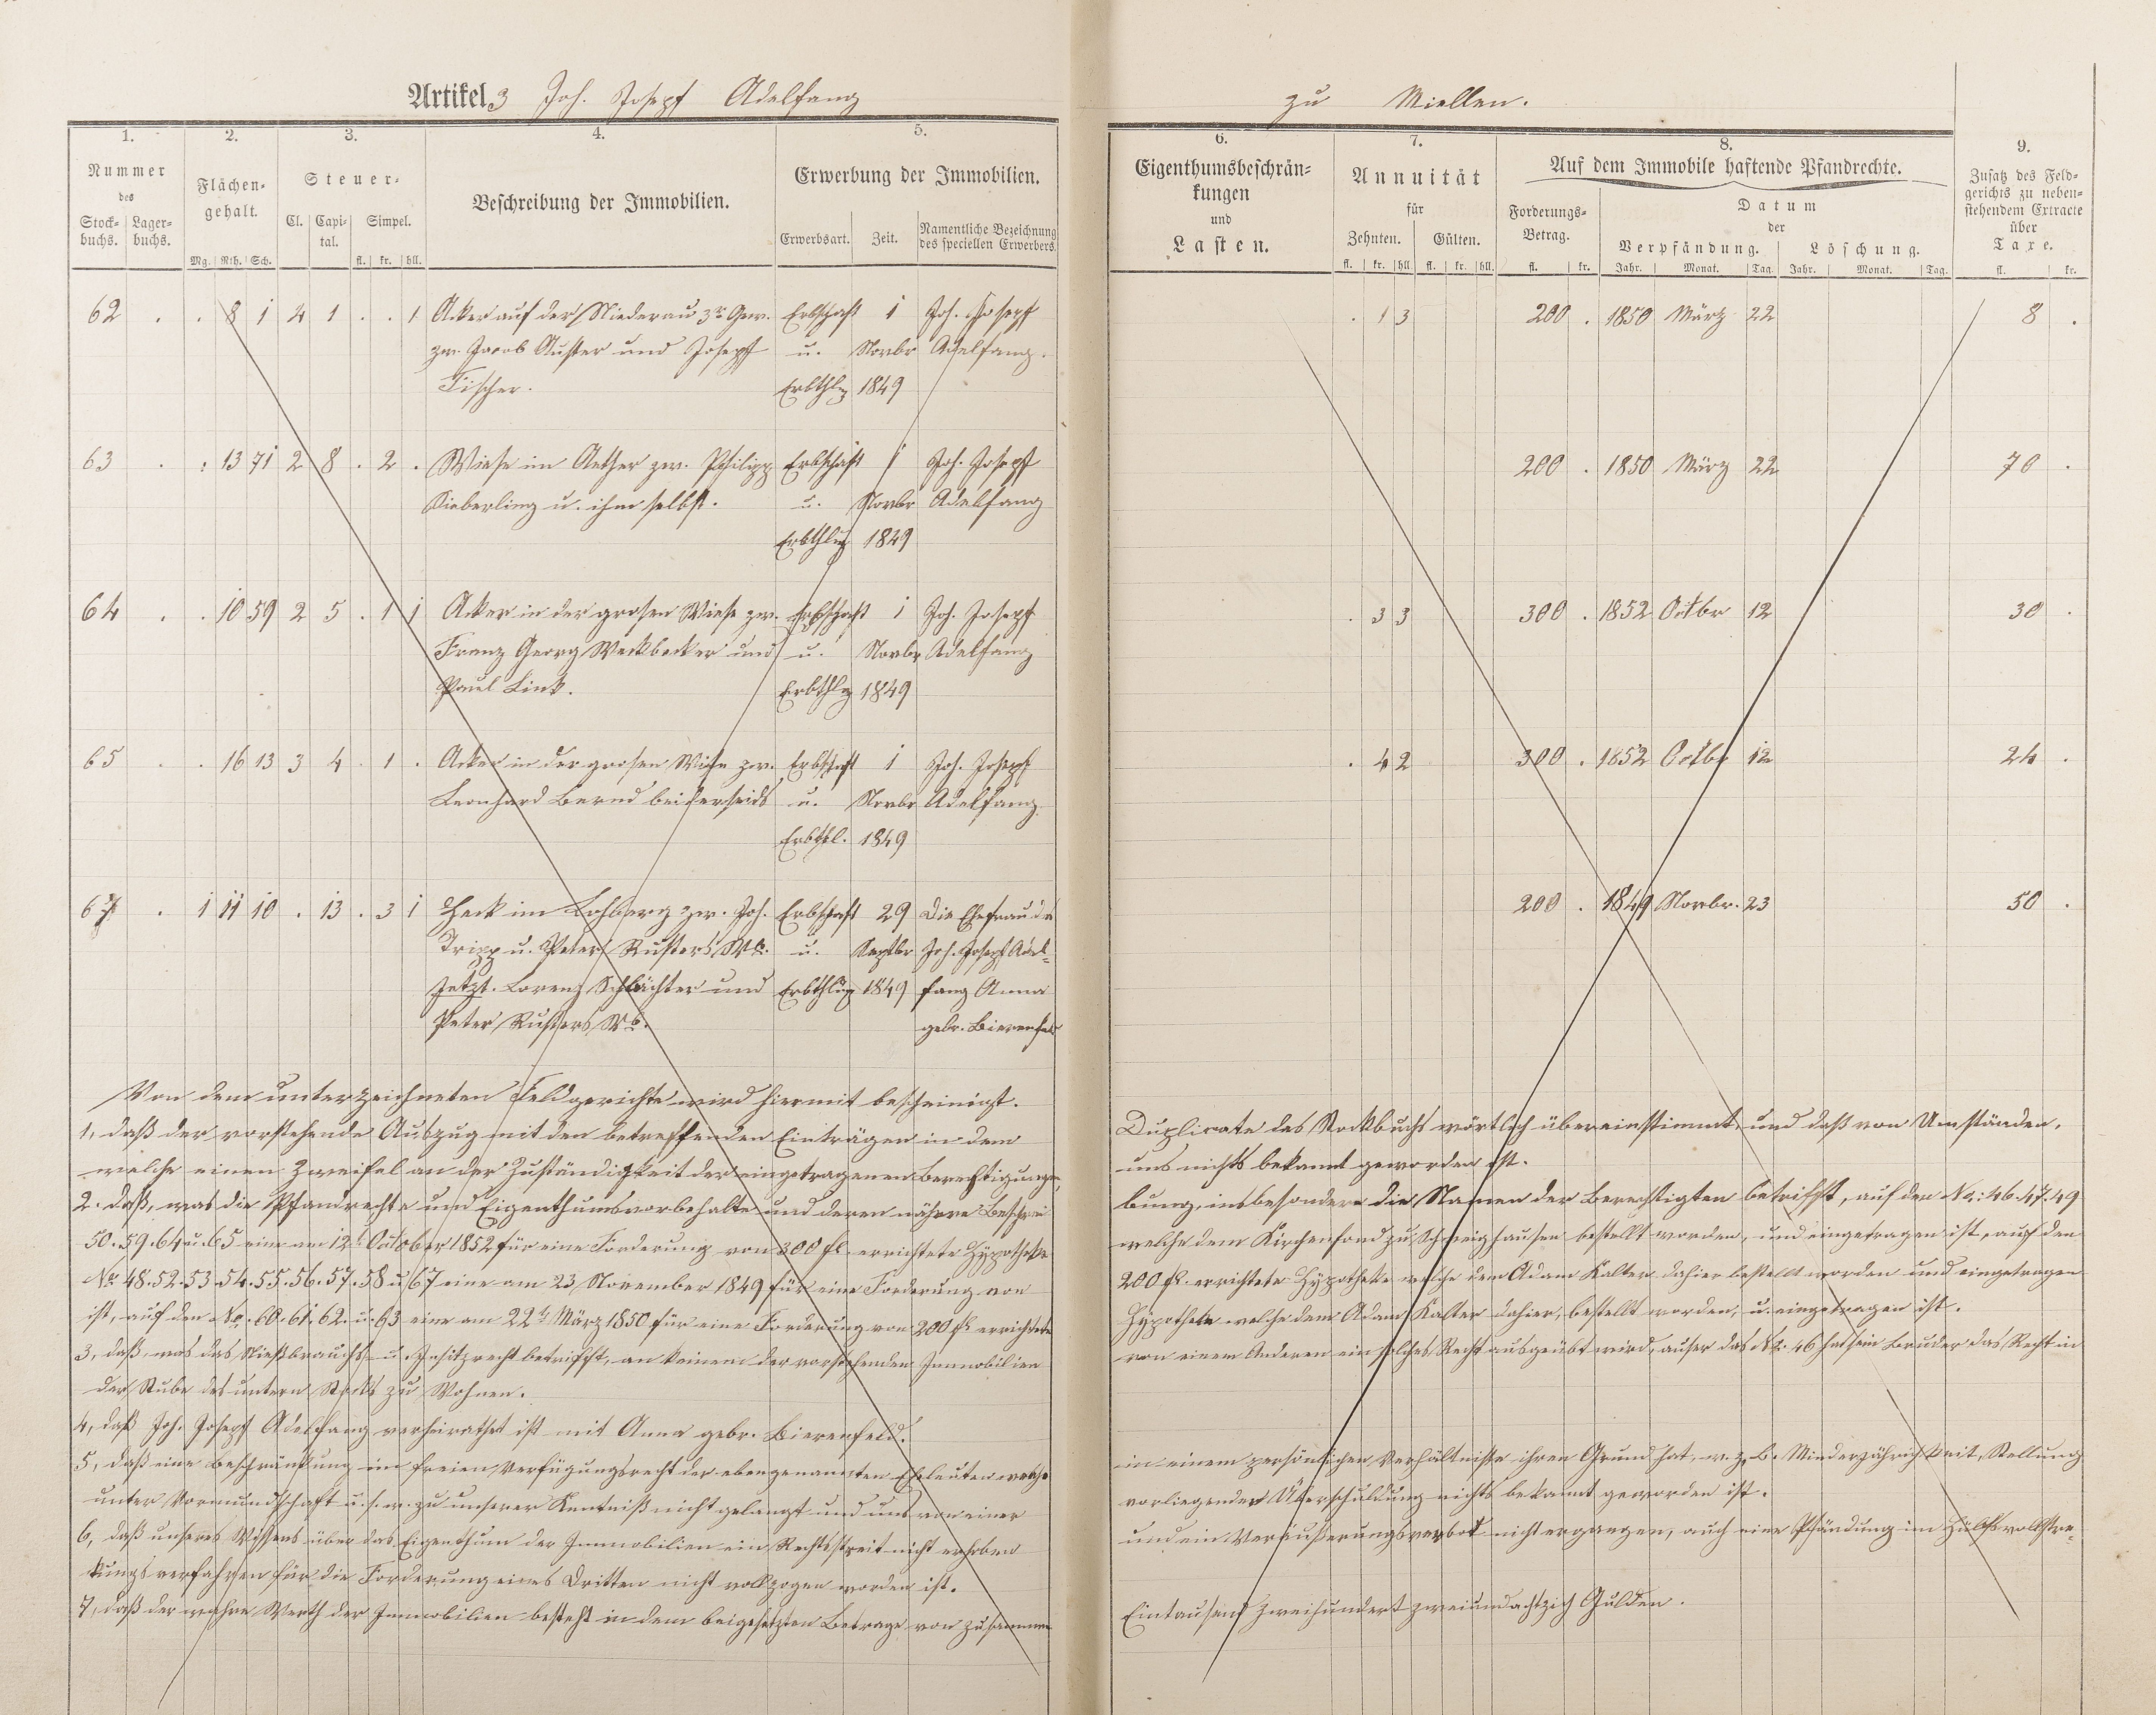 Artikel 3 Joh. Josepf Adelfang
zu Miellen.
1. 2. 3. 4. 5.
Nummer des
Stock- buchs. Lager- buchs.
Flächen- gehalt.
Mg. Rth. Sch.
Steuer-
Cl. Capi- tal. Simpel.
fl. kr. hll.
Beschreibung der Immobilien.
Erwerbung der Immobilien.
Erwerbsart. Zeit. Namentliche Bezeichnung des speciellen Erwerbers.
6. 7. 8. 9.
Eigenthumsbeschrän-
kungen
und
Lasten.
Annuität
für
Zehnten. Gülten.
fl. kr. hll. fl. kr. hll.
Auf dem Immobile haftende Pfandrechte.
Forderungs- Betrag.
fl. kr.
Datum
der
Verpfändung. Löschung.
Jahr. Monat. Tag. Jahr. Monat. Tag.
Zusatz des Feld-
gerichts zu neben-
stehendem Extracte
über
Taxe.
fl. kr.
62 . . 8 1 4 1 . . 1 Acker auf der Niederau 3r Gew. Erbschaft 1 Joh. Josepf . 1 3 200 . 1850 März 22 8 .
zw. Jacob Ruster und Josepf u. Novbr Adelfang.
Fischer. Erbthlg 1849
63 . . 13 71 2 8 . 2 . Wiese im Aether zw. Philipp Erbschaft 1 Joh. Josepf 200 . 1850 März 22 70 .
Kieberling u. ihm selbst. u. Novbr Adelfang
Erbthlug 1849
64 . . 10 59 2 5 . 1 1 Acker in der grosen Wiese zw. Erbschaft 1 Joh. Josepf . 3 3 300 . 1852 Octbr 12 30 .
Franz Georg Weckbecker und u. Novbr Adelfang
Paul Link. Erbthlg 1849
65 . . 16 13 3 4 . 1 . Acker in der grosen Wiese zw. Erbschaft 1 Joh. Josepf . 4 2 300 . 1852 Octbr 12 24 .
Leonhard Bernd beiderseids u. Novbr Adelfang.
Erbthl. 1849
67 . 1 11 10 . 13 . 3 1 Heck im Lohberg zw. Joh. Erbschaft 29 Die Ehefrau des 200 . 1849 Novbr. 23 50 .
Tripp u. Peter Rusters Wb. u. Septbr Joh. Joseph Adel-
Jetzt. Lorenz Schlächter und Erbthlug 1849 fang Anna
Peter Rusters Wb. gebr. Bierenfeld
Von dem unterzeichneten Feldgerichte wird hiermit bescheinigt.
1, daß der vorstehende Auszug mit den betreffenden Einträgen in dem Duplicate des Stockbuchs wörtlich übereinstimmt, und daß von Umständen,
welche einen Zweifel an der Zuständigkeit der eingetragenen Berechtigungen, uns nichts bekannt geworden ist.
2. daß, was die Pfandrechte und Eigenthumsvorbehalte und deren nähere Beschrei- bung, insbesondere die Namen der Berechtigten betrifft, auf den No: 46. 47. 49
50. 59. 64 u. 65 eine am 12t October 1852 für eine Forderung von 300 fl. errichtete Hypotheke welche dem Kirchenfond zu Schweighausen bestellt worden, und eingetragen ist, auf den
No 48. 52. 53. 54. 55. 56. 57. 58 u. 67 eine am 23 November 1849 für eine Forderung von 200 fl. errichtete Hypotheke welche dem Adam Kalter dahier bestellt worden und eingetragen
ist, auf den No. 60. 61. 62. u. 63 eine am 22t März 1850 für eine Forderung von 200 fl errichtete Hypothek welche dem Adam Kalter dahier, bestellt worden, u. eingetragen ist.
3, daß, was das Nießbrauchs- u. Insitzrecht betrifft, an keinem der vorstehenden Immobilien von einem Anderen ein solches Recht ausgeübt wird, auser das No. 46 hat sein Bruder das Recht in
der Stube des untern Stocks zu Wohnen.
4, daß Joh. Josepf Adelfang verheirathet ist mit Anna gebr. Bierenfeld.
5, daß eine Beschränkung im freien Verfügungsrecht der ebengenannten Eheleuten welche in einem persönlichen Verhältnisse ihren Grund hat, w. z. B. Minderjährichkeit, Stellung
unter Vormundschaft u. s. w. zu unserer Kentniß nicht gelangt und uns von einer vorliegenden Überschuldung nichts bekannt geworden ist.
6, daß unseres Wissens über das Eigenthum der Immobilien ein Rechtsstreit nicht erhoben und ein Veräußerungsverbot nicht ergangen, auch eine Pfändung im Hülfsvollstre-
kungsverfahren für die Forderung eines Dritten nicht vollzogen worden ist.
7, daß der wahre Werth der Immobilien besteht in dem beigesetzten Betrage von zusammen Eintausend zweihundert zweiundachtzich Gulden.